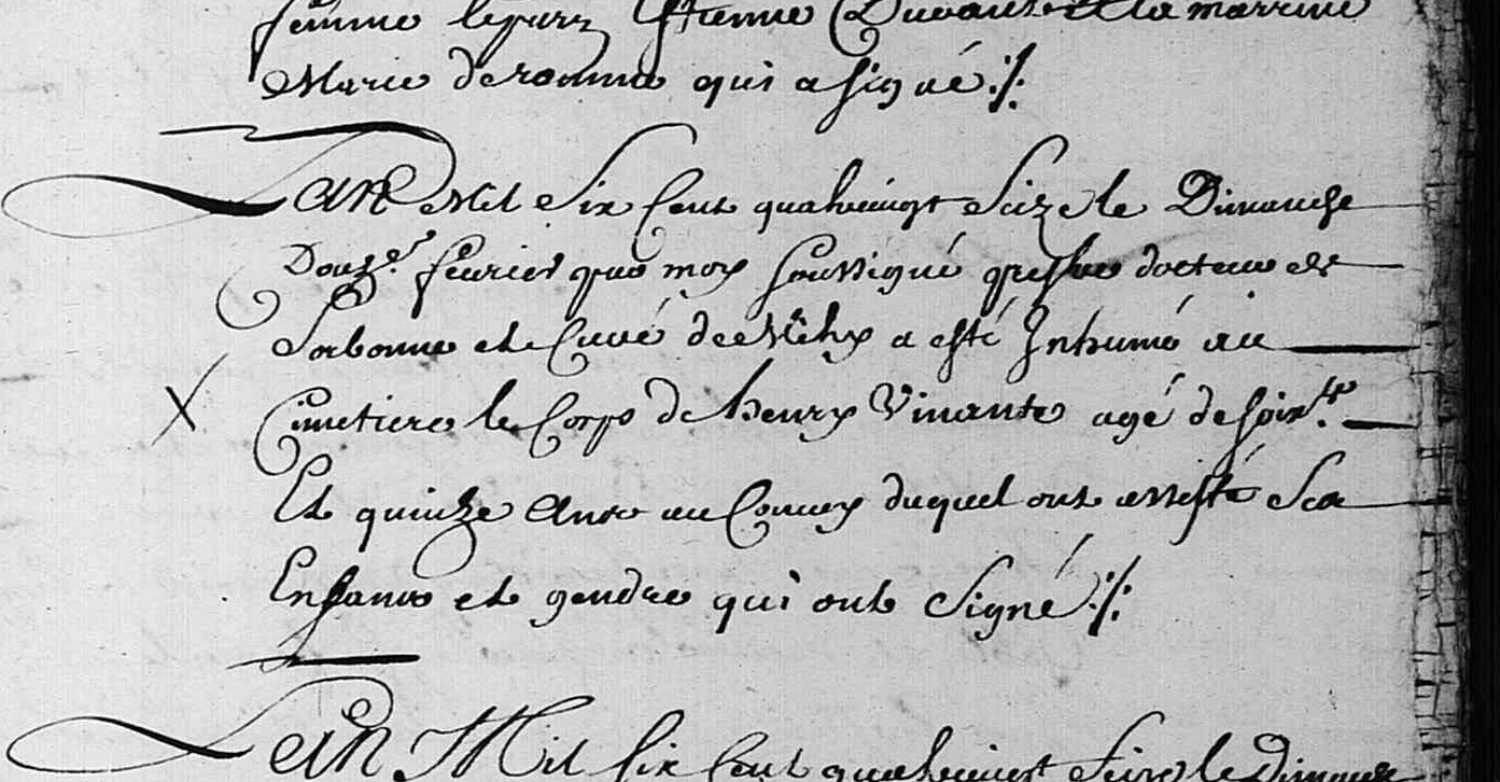 femme le parn Estienne Duvaux et la marrine
Marie deromme qui a signé ./.
Lan Mil Six Cent quatrevingt Seize le Dimanche
Douz.e fevrier par moy soussigné prestre docteur de
Sorbonne et Curé de Vitry a esté Inhumé au
Cimetiere le Corps de henry Vinante agé de soix.te
Et quinze Ans au Convoy duquel ont assisté Ses
Enfans et gendre qui ont Signé ./.
Lan Mil six Cent quatrevingt Seize le Dimanche